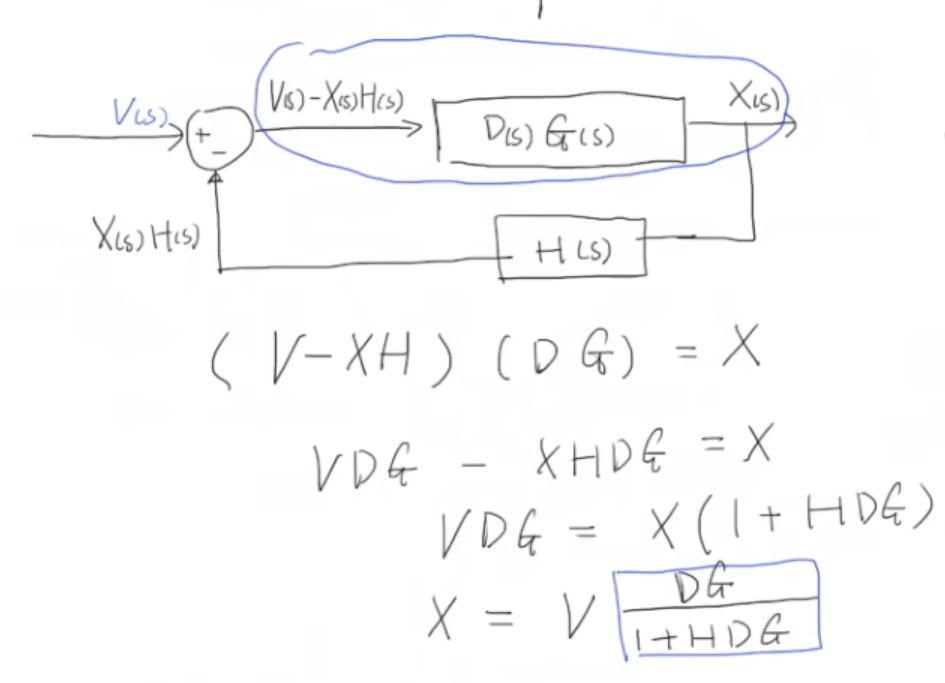 V(s)
+
−
V(s)-X(s)H(s)
D(s) G(s)
X(s)
X(s) H(s)
H(s)
(V-XH) (DG) = X
VDG - XHDG = X
VDG = X(1+HDG)
X = V DG
1+HDG